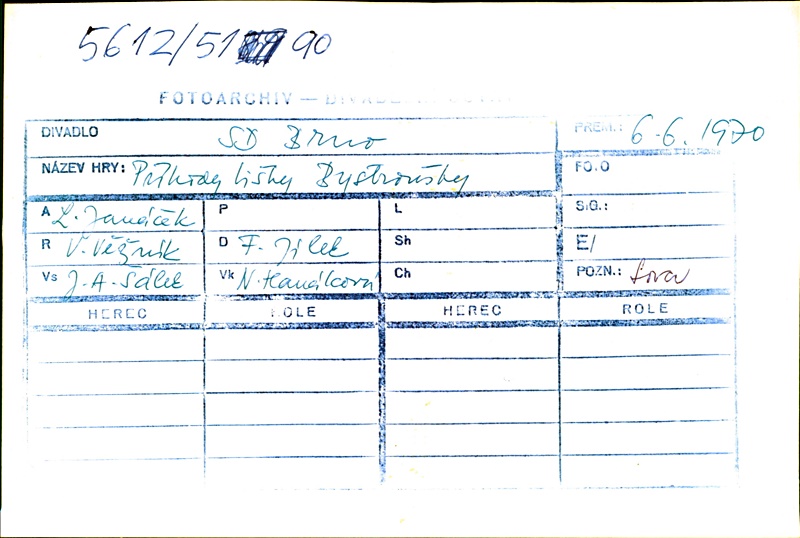 5612/51 90
FOTOARCHIV —
DIVADLO SD Brno PREM.: 6.6. 1970
NÁZEV HRY: Příhody lišky Bystroušky FO.O
A L. Janáček P L SIG.:
R V. Věžník D F. Jílek Sh E/
Vs J.A. Šálek Vk N. Hanáková Ch POZN.:
HEREC ROLE HEREC ROLE